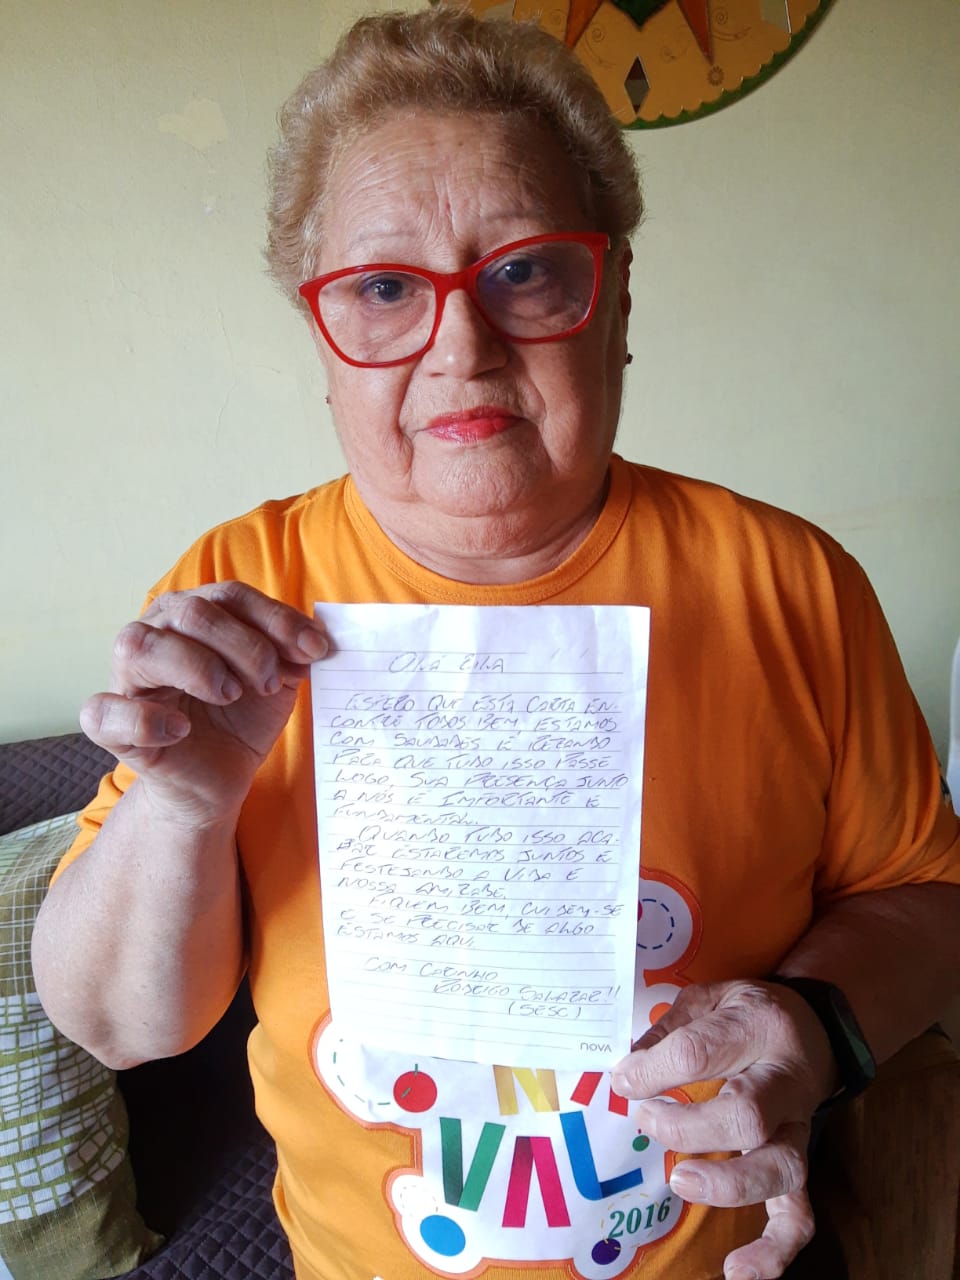 OLÁ ZILA
ESPERO QUE ESTA CARTA EN-
CONTRE TODOS BEM, ESTAMOS
COM SAUDADES E REZANDO
PARA QUE TUDO ISSO PASSE
LOGO, SUA PRESENÇA JUNTO
A NÓS É IMPORTANTE E
FUNDAMENTAL.
QUANDO TUDO ISSO ACA-
BAR ESTAREMOS JUNTOS E
FESTEJANDO A VIDA E
NOSSA AMIZADE.
FIQUEM BEM, CUIDEM-SE
E SE PRECISAR DE ALGO
ESTAMOS AQUI.
COM CARINHO
RODRIGO SALAZAR!!
(SESC)
NOVA
NA
VAL
2016